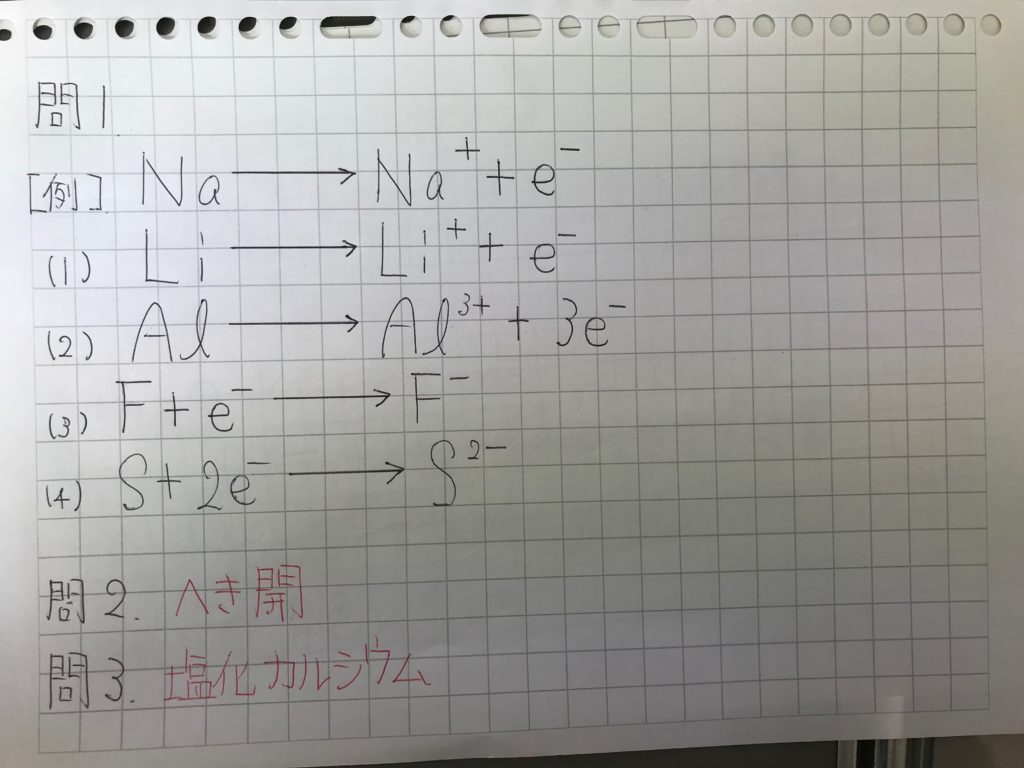 問1
[例] Na → Na⁺ + e⁻
(1) Li → Li⁺ + e⁻
(2) Al → Al³⁺ + 3e⁻
(3) F + e⁻ → F⁻
(4) S + 2e⁻ → S²⁻
問2. へき開
問3. 塩化カルシウム